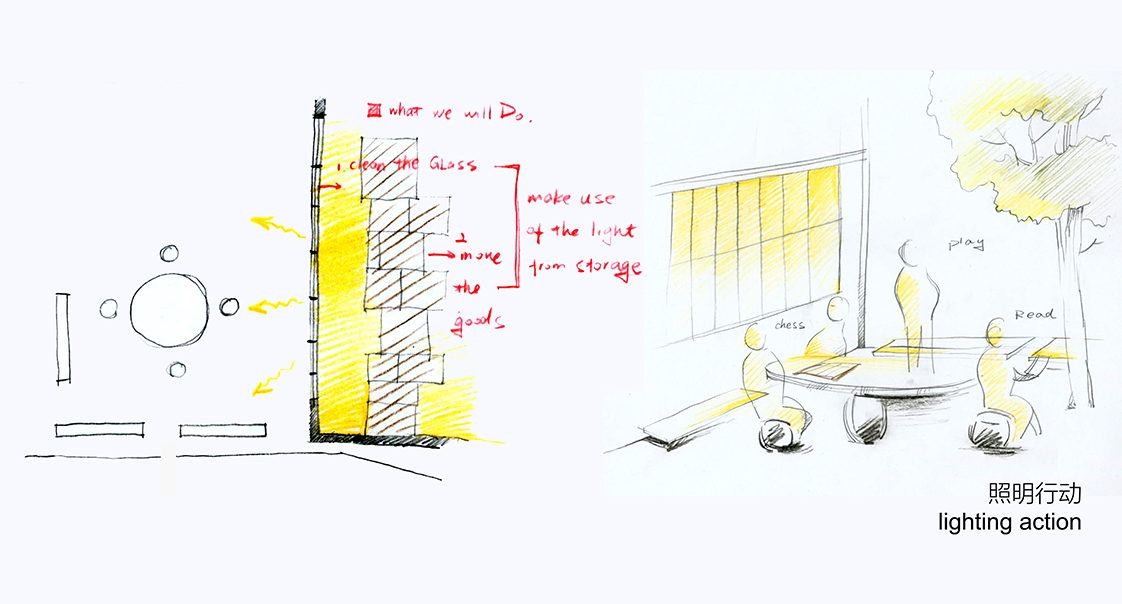 what we will Do.
1. clean the GLass
2
move
the
goods
make use
of the light
from storage
play
chess
Read
照明行动
lighting action